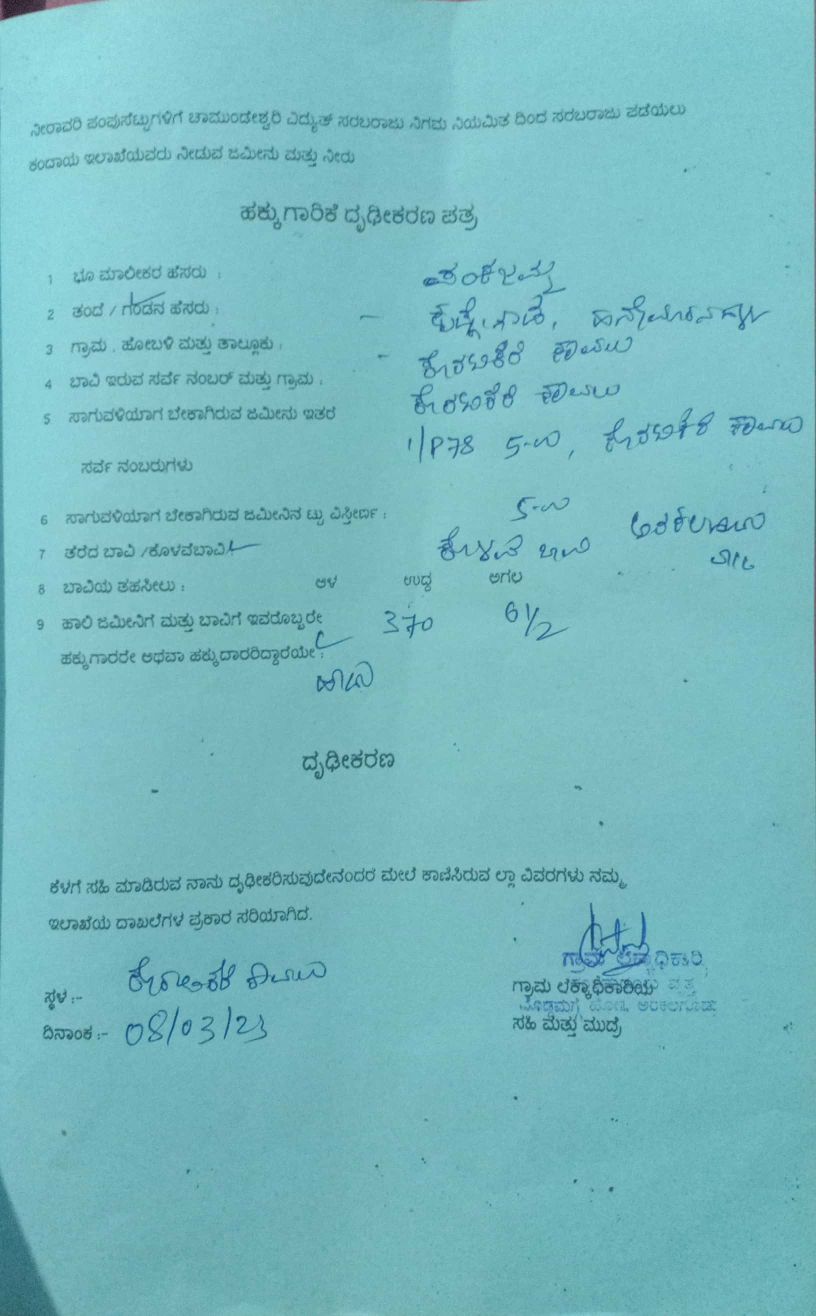 ನೀರಾವರಿ ಪಂಪುಸೆಟ್ಟುಗಳಿಗೆ ಚಾಮುಂಡೇಶ್ವರಿ ವಿದ್ಯುತ್ ಸರಬರಾಜು ನಿಗಮ ನಿಯಮಿತ ದಿಂದ ಸರಬರಾಜು ಪಡೆಯಲು
ಕಂದಾಯ ಇಲಾಖೆಯವರು ನೀಡುವ ಜಮೀನು ಮತ್ತು ನೀರು
ಹಕ್ಕುಗಾರಿಕೆ ದೃಢೀಕರಣ ಪತ್ರ
1 ಭೂ ಮಾಲೀಕರ ಹೆಸರು : ಪಂಕಜಮ್ಮ
2 ತಂದೆ / ಗಂಡನ ಹೆಸರು :
3 ಗ್ರಾಮ . ಹೋಬಳಿ ಮತ್ತು ತಾಲ್ಲೂಕು : ಕಾವಲು
4 ಬಾವಿ ಇರುವ ಸರ್ವೆ ನಂಬರ್ ಮತ್ತು ಗ್ರಾಮ : ಕಾವಲು
5 ಸಾಗುವಳಿಯಾಗ ಬೇಕಾಗಿರುವ ಜಮೀನು ಇತರ 1/P78 5-00, ಕಾವಲು
ಸರ್ವೆ ನಂಬರುಗಳು
6 ಸಾಗುವಳಿಯಾಗ ಬೇಕಾಗಿರುವ ಜಮೀನಿನ ಟ್ಟು ವಿಸ್ತೀರ್ಣ : 5-00
7 ತೆರೆದ ಬಾವಿ /ಕೊಳವೆಬಾವಿ ಕೊಳವೆ ಬಾವಿ
8 ಬಾವಿಯ ತಹಸೀಲು : ಆಳ ಉದ್ದ ಅಗಲ
9 ಹಾಲಿ ಜಮೀನಿಗೆ ಮತ್ತು ಬಾವಿಗೆ ಇವರೊಬ್ಬರೇ 370 6 1/2
ಹಕ್ಕುಗಾರರೇ ಅಥವಾ ಹಕ್ಕುದಾರರಿದ್ದಾರೆಯೇ :
ಹೌದು
ದೃಢೀಕರಣ
ಕೆಳಗೆ ಸಹಿ ಮಾಡಿರುವ ನಾನು ದೃಢೀಕರಿಸುವುದೇನಂದರೆ ಮೇಲೆ ಕಾಣಿಸಿರುವ ಲ್ಲಾ ವಿವರಗಳು ನಮ್ಮ
ಇಲಾಖೆಯ ದಾಖಲೆಗಳ ಪ್ರಕಾರ ಸರಿಯಾಗಿದೆ.
ಗ್ರಾಮ ಲೆಕ್ಕಾಧಿಕಾರಿ
ಸ್ಥಳ :- ಕಾವಲು
ಗ್ರಾಮ ಲೆಕ್ಕಾಧಿಕಾರಿಯ
ದಿನಾಂಕ :- 08/03/23
ಸಹಿ ಮತ್ತು ಮುದ್ರೆ